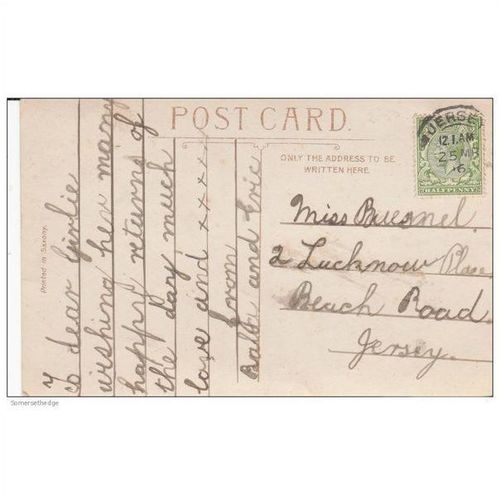 POST CARD.
ONLY THE ADDRESS TO BE
WRITTEN HERE.
Printed in Saxony.
To dear Girlie
wishing her many
happy returns of
the day much
love and xxxx
from
and Eric
Miss
2 Lucknow Place
Beach Road.
Jersey.
GUERNSEY
12.1.AM
25 MR
HALFPENNY
Somersethedge